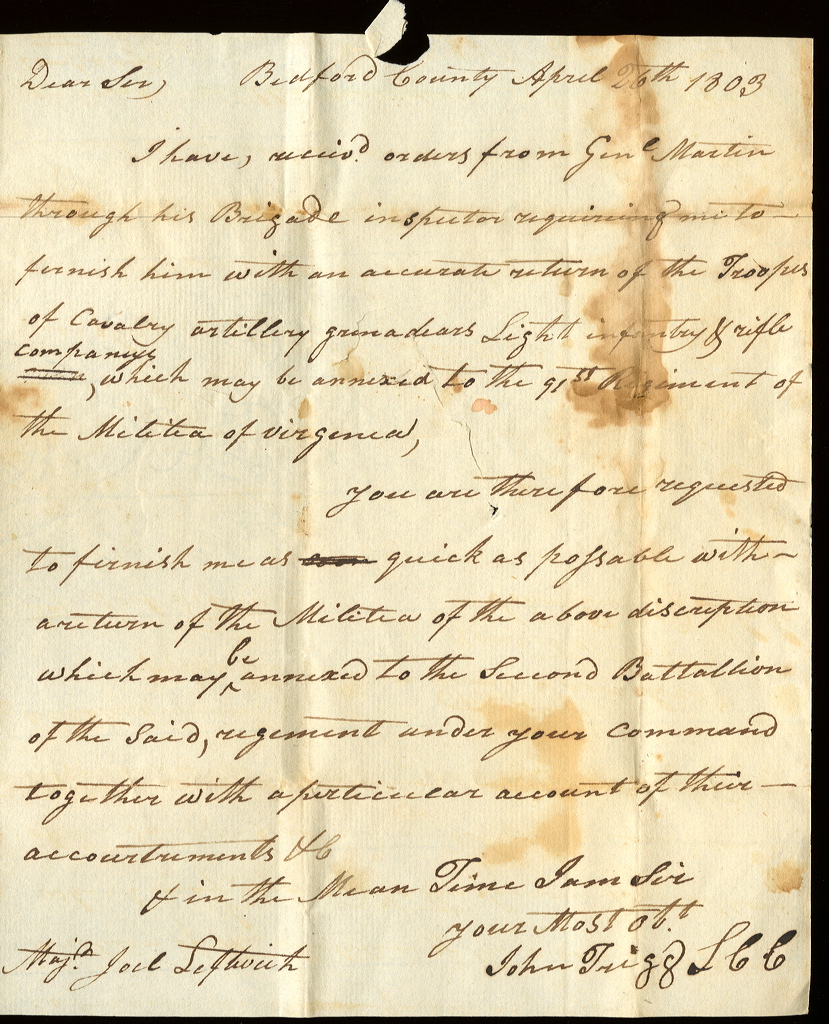 Dear Sir, Bedford County April 26th 1803
I have, receivd. orders from Genl Martin
through his Brigade inspector requiring me to
firnish him with an accurate return of the Troopes
of Cavalry artillery grenadears Light infentry & rifle
companeys
, which may be annexed to the 91st Regiment of
the Militea of virginea,
you are therefore requested
to firnish me as quick as possable with
a return of the Militea of the above discreption
which may be annexed to the Second Battallion
of the Said, regement under your Command
together with a perticular account of their
accourtruments &C
& in the Mean Time I am Sir
your Most Obt.
Majr. Joel Leftwich John Trigg L C C